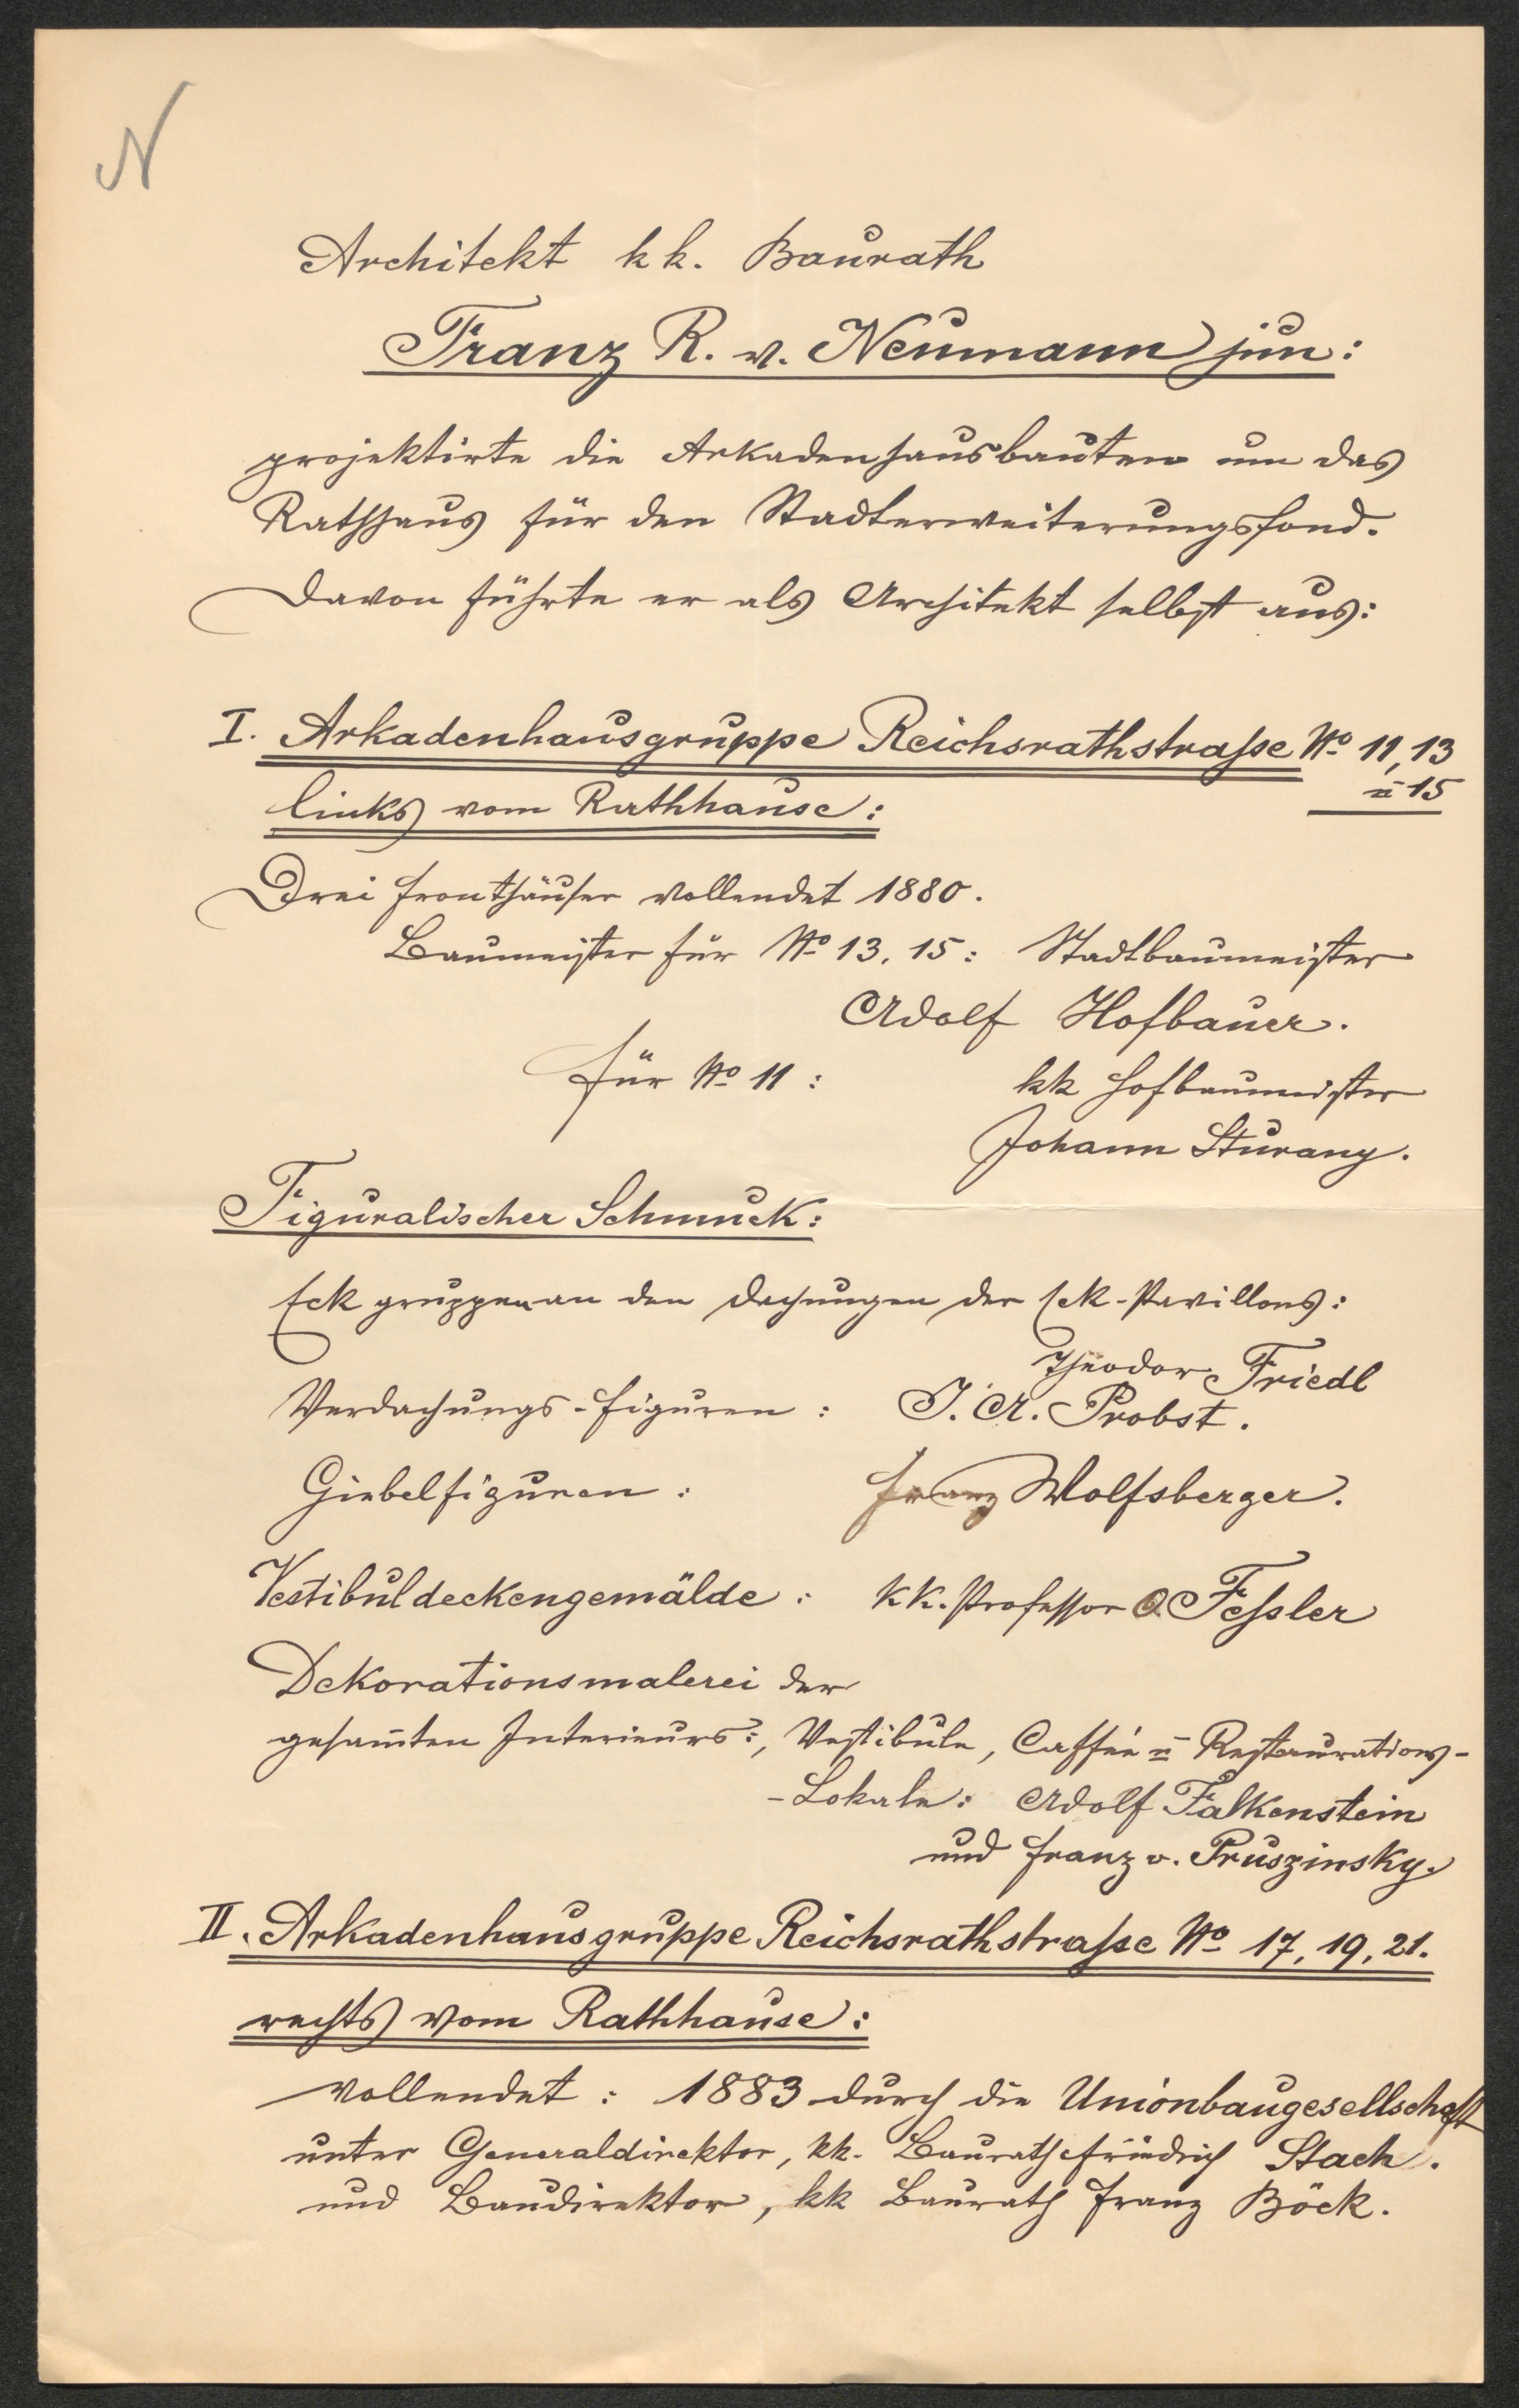 N
Architekt kk. Baurath
Franz R. v. Neumann jun:
projektirte die Arkadenhausbauten um das
Rathhaus für den Stadterweiterungsfond.
Davon führte er als Architekt selbst aus:
I. Arkadenhausgruppe Reichsrathstraße No 11, 13
u 15
links vom Rathhause:
Drei Fronthäuser vollendet 1880.
Baumeister für No 13, 15: Stadtbaumeister
Adolf Hofbauer.
für No 11: kk Hofbaumeister
Johann Sturany.
Figuralischer Schmuck:
Eckgruppen an den Dachungen der Eck-Pavillons:
Theodor Friedl
Verdachungs-figuren: J. A. Probst.
Giebelfiguren: Franz Wolfsberger.
Vestibuldeckengemälde: KK. Professor Feßler
Dekorationsmalerei der
gesam̄ten Interieurs:, Vestibule, Caffée u Restaurations-
-Lokale: Adolf Falkenstein
und Franz v. Pruszinsky.
II. Arkadenhausgruppe Reichsrathstraße No 17, 19, 21.
rechts vom Rathhause:
vollendet: 1883 durch die Unionbaugesellschaft
unter Generaldirektor, kk. Baurath Friedrich Stach.
und Baudirektor, kk Baurath Franz Böck.